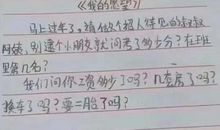 《我的愿望》
马上过年了，请你个超人体见的叔叔
阿姨，别逮个小朋友就问考了多少分？在班
里第几名？
我们问你工资多少了吗？几套房了吗？
换车了吗？要二胎了吗？